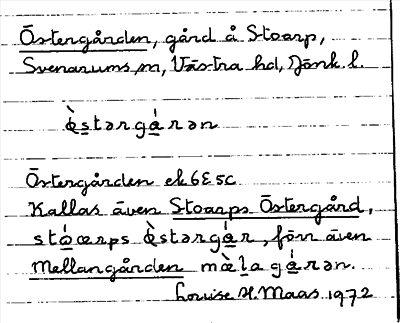 Östergården, gård å Stoarp,
Svenarums sn, Västra hd, Jönk. l.
ὼstərgárən
Östergården ek 6E5c
Kallas även Stoarps Östergård,
stóœrps ὼstərgár, förr även
Mellangården mὼlagárən.
Louise H. Maas 1972